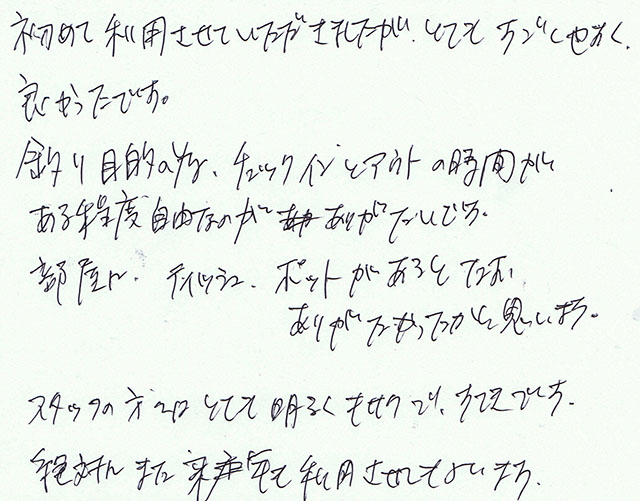 初めて利用させていただきましたが、とてもすごしやすく、
良かったです。
釣り目的の為、チェックインとアウトの時間が
ある程度自由なのがありがたいです。
部屋に、ティッシュ、ポットがあるとなお、
ありがたかったかと思います。
スタッフの方々もとても明るくキサクで、すてきです。
絶対にまた来年も利用させてもらいます。